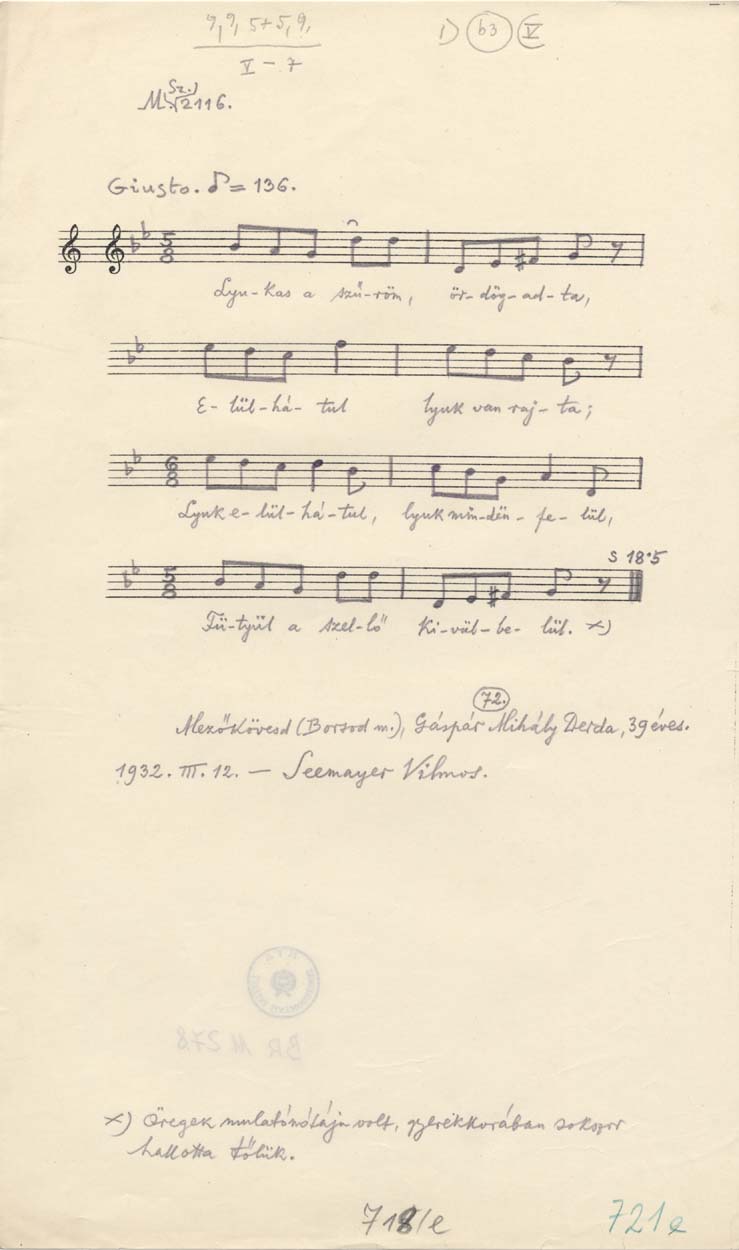 9, 9, 5+5, 9,
V – 7
1) b3 V
Sz.)
M. 2116.
Giusto. ♪ = 136.
5 8
Lyu-kas a szű-röm, ör-dög-ad-ta,
E-lül-há-tul lyuk van raj-ta;
6 8
Lyuk e-lül-há-tul, lyuk min-dën-fe-lül,
s 18·5
5 8
Fü-tyül a szel-lő Ki-vül-be-lül. x)
72.
Mezőkövesd (Borsod m.), Gáspár Mihály Derda, 39 éves.
1932. III. 12. — Seemayer Vilmos.
BR M 278
x) Öregek mulatónótája volt, gyerekkorában sokszor
hallotta tőlük.
718/e 721e